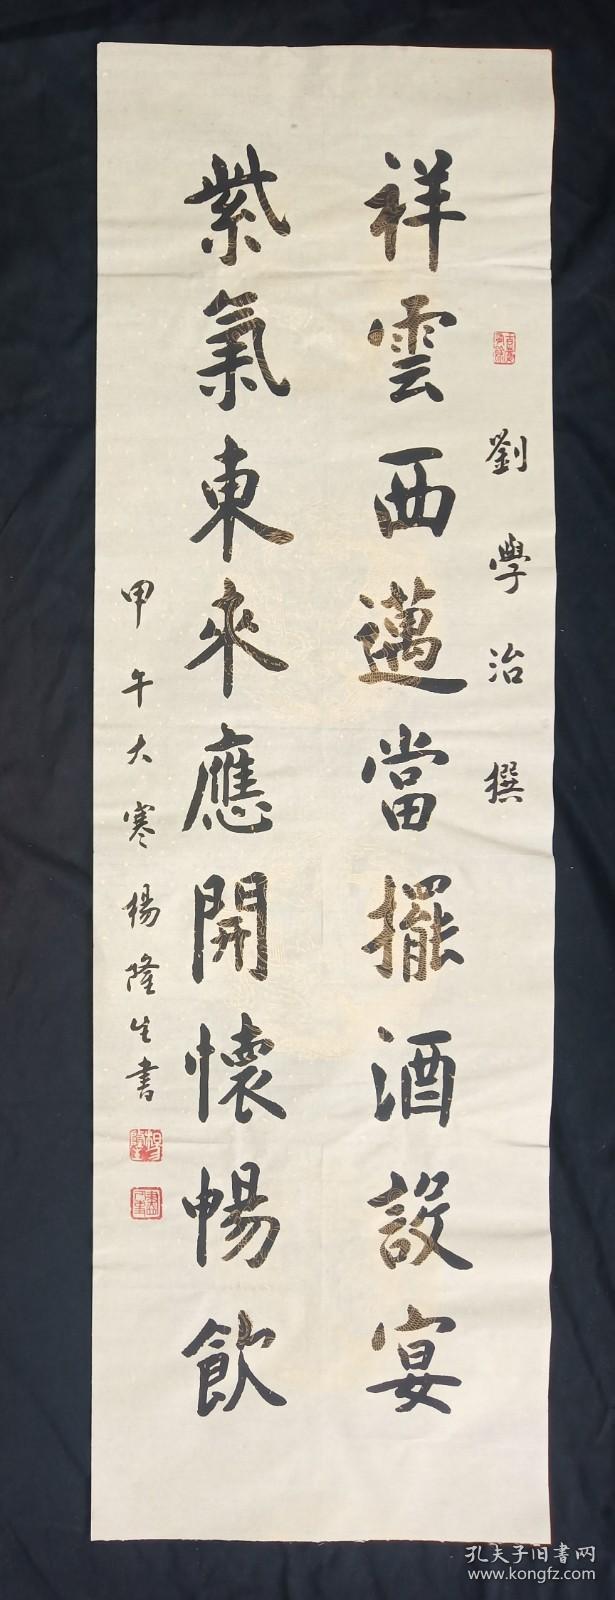 劉學治撰
祥雲西邁當擺酒設宴
紫氣東來應開懷暢飲
甲午大寒楊隆生書
孔夫子旧书网
www.kongfz.com